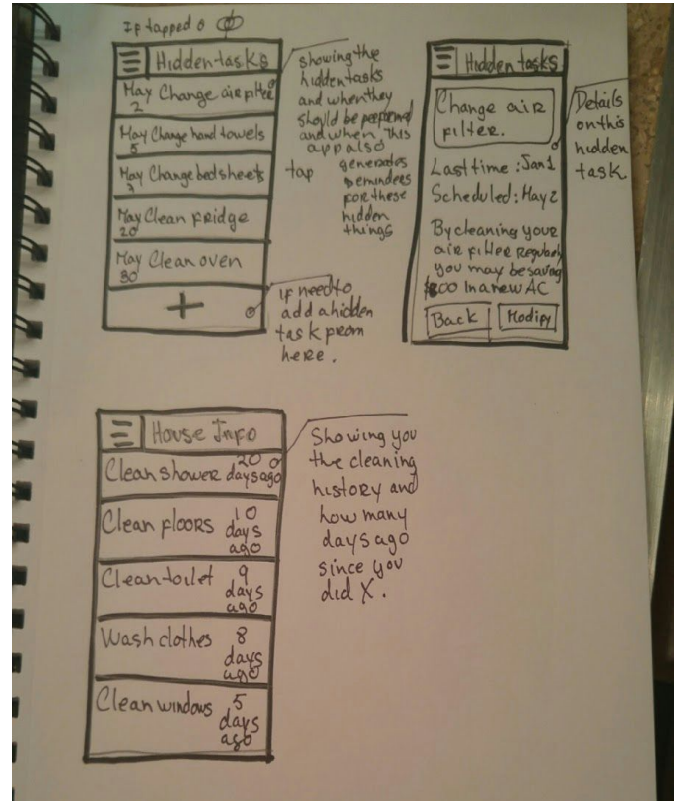 If tapped
Hidden tasks
May 2 Change air filter
May 5 Change hand towels
May 7 Change bedsheets
May 20 Clean fridge
May 30 Clean oven
+
showing the
hidden tasks
and when they
should be performed
and when. This
app also
generates
reminders
for these
hidden
things
tap
if need to
add a hidden
task from
here.
Hidden tasks
Change air
filter.
Last time: Jan 1
Scheduled: May 2
By cleaning your
air filter regularly
you may be saving
in a new AC
Back
Modify
Details
on this
hidden
task
House Info
Clean shower 20 days ago
Clean floors 10 days ago
Clean toilet 9 days ago
Wash clothes 8 days ago
Clean windows 5 days ago
Showing you
the cleaning
history and
how many
days ago
since you
did X.